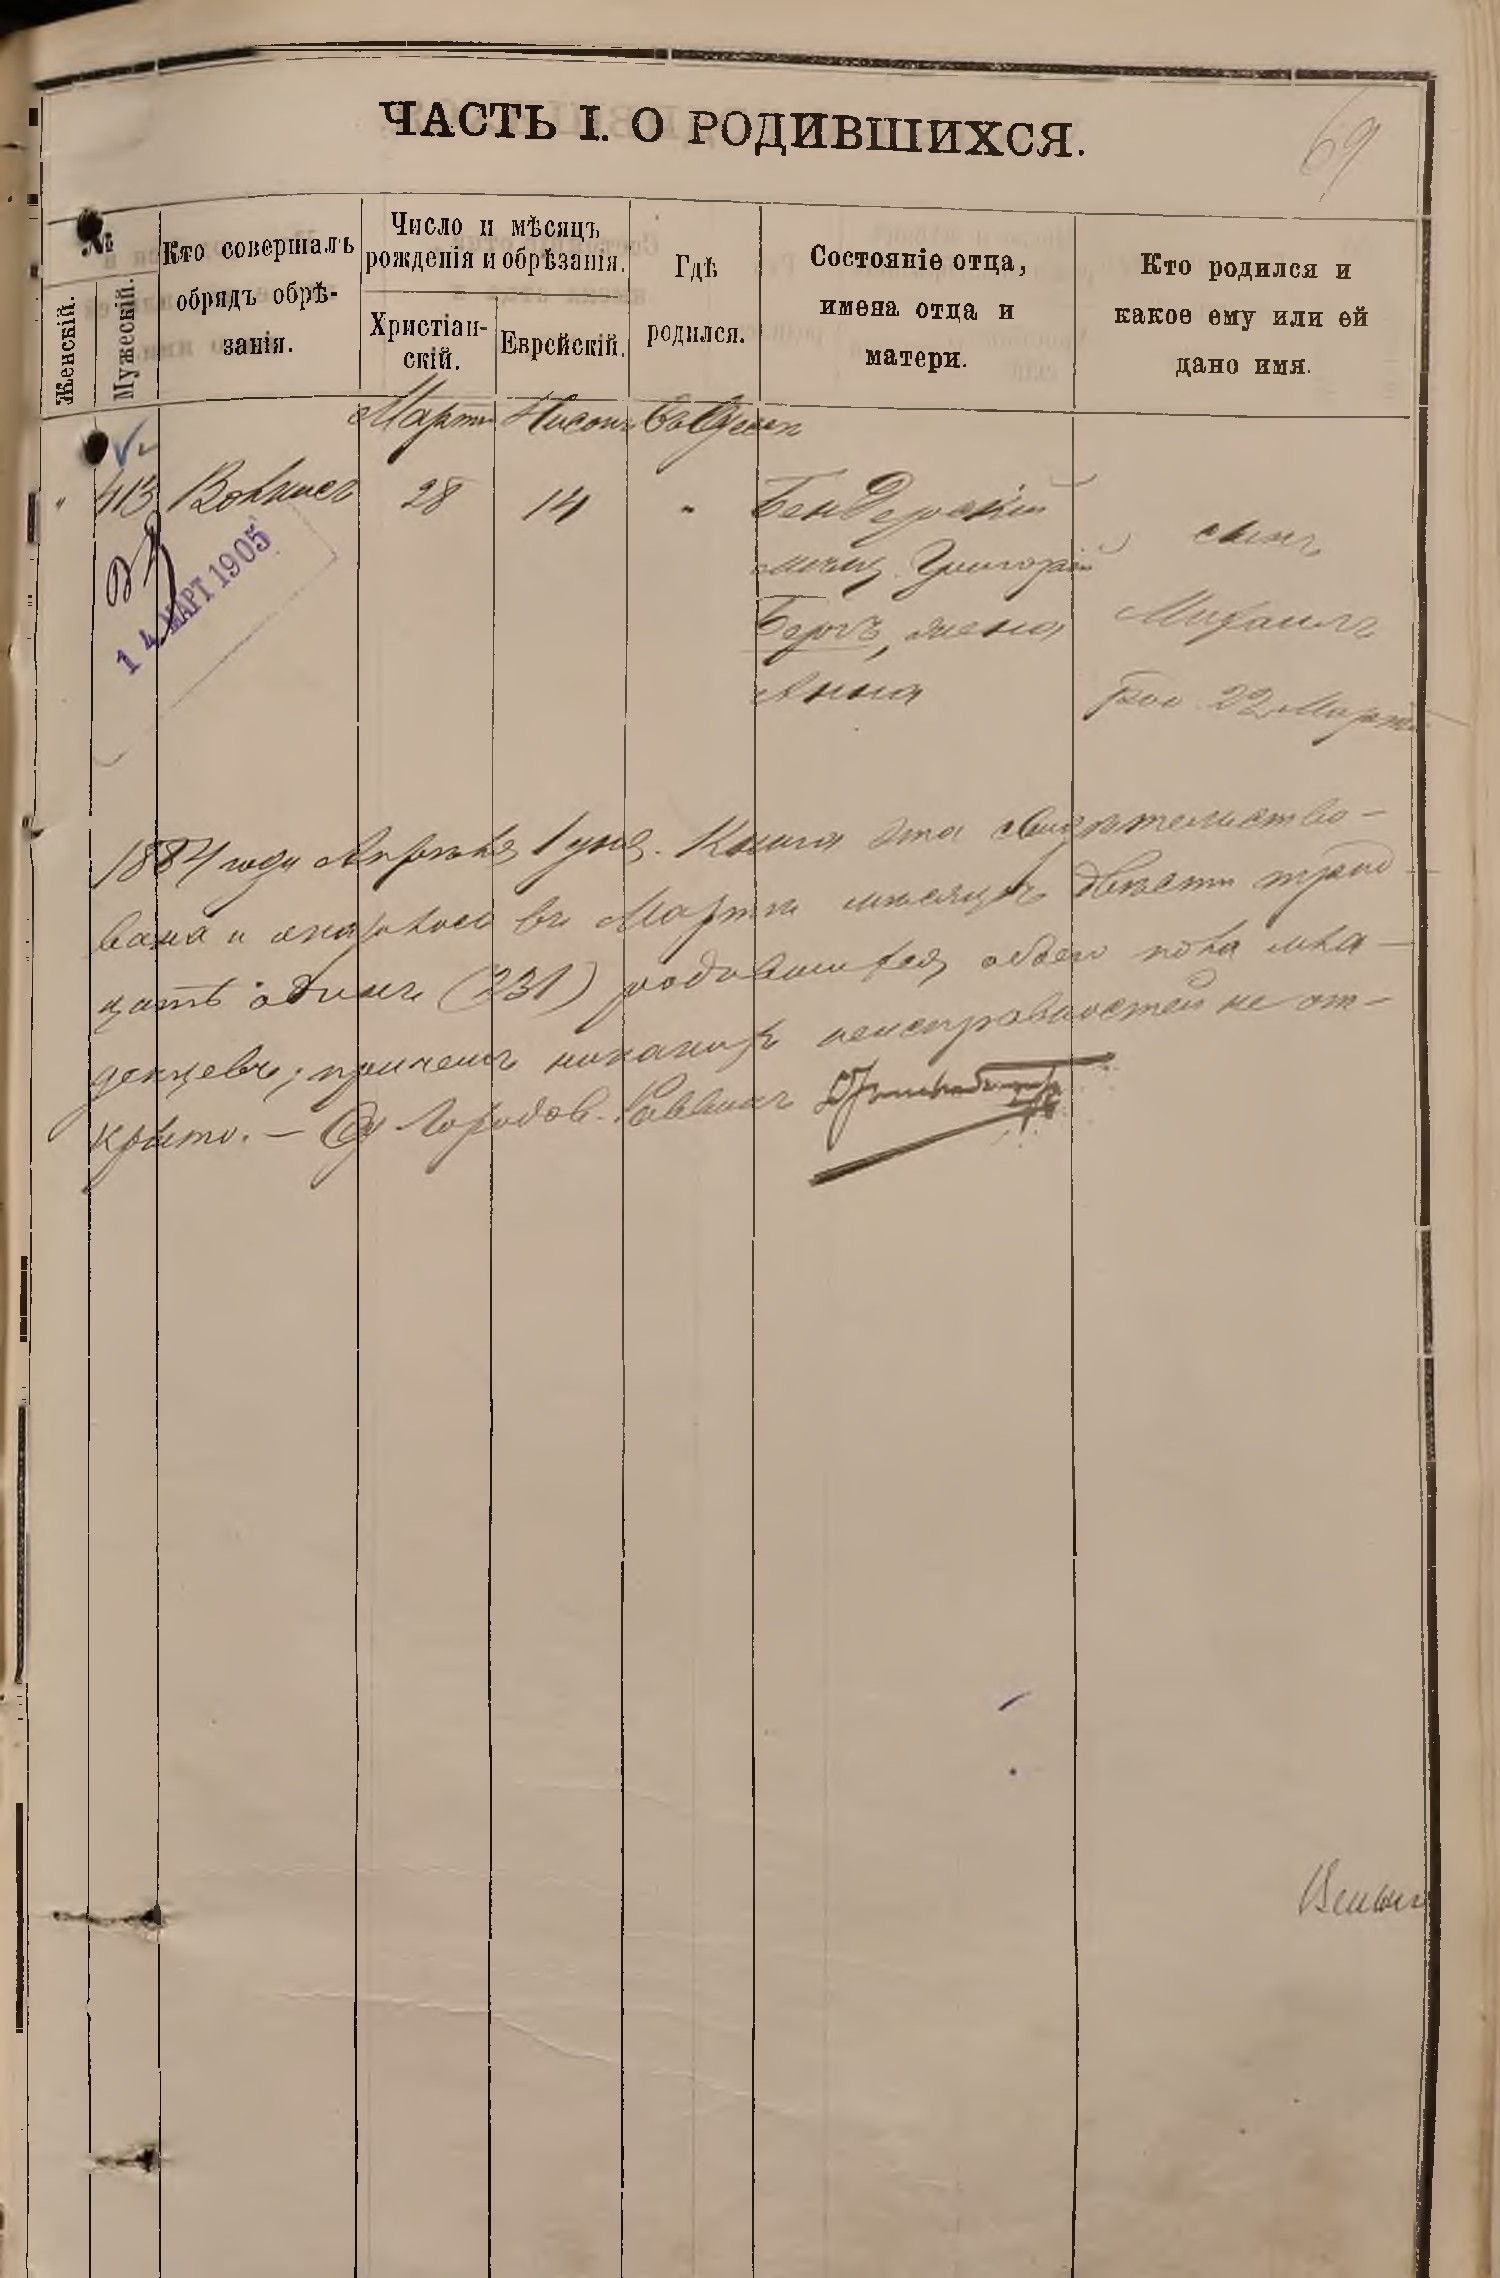 69
ЧАСТЬ I. О РОДИВШИХСЯ.
№
Женскій.
Мужескій.
Кто совершалъ
обрядъ обрѣ-
занія.
Число и мѣсяцъ
рожденія и обрѣзанія.
Христіан-
скій.
Еврейскій.
Гдѣ
родился.
Состояніе отца,
имена отца и
матери.
Кто родился и
какое ему или ей
дано имя.
Мартъ Нисонъ Въ Одессѣ
" 413 28 14 " Бендерскій
мѣщ. Григорій
Бергъ, жена
Анна
сынъ
Михаилъ
род. 22 Марта
14 МАРТ 1905
1884 года Апрѣля 1 дня. Книга эта свидѣтельство-
вана и оказалось въ Мартѣ мѣсяцѣ двѣсти трид
цать одинъ (231) родившихся обоего пола мла-
денцевъ; причемъ никакихъ неисправностей не от-
крыто. — Од. Городов. Раввинъ